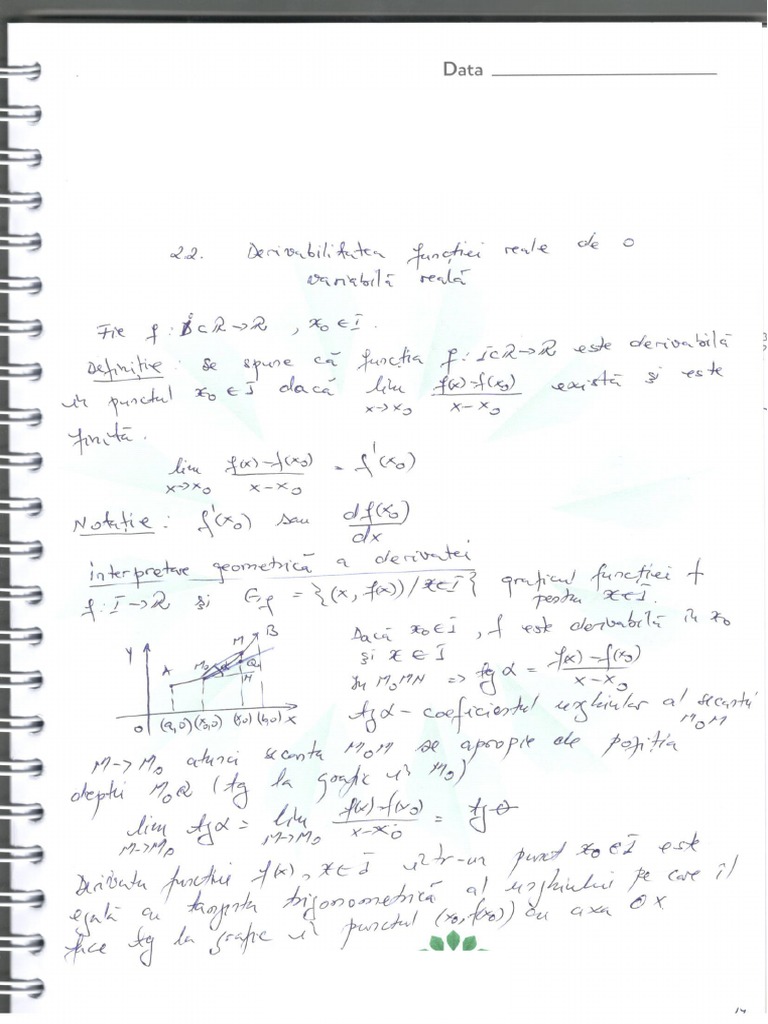 Data
2.2. Derivabilitatea funcției reale de o
variabilă reală
Fie f : I ⊂ R → R , x₀ ∈ I.
Definiție : Se spune că funcția f : I ⊂ R → R este derivabilă
în punctul x₀ ∈ I dacă lim x→x₀ (f(x)-f(x₀))/(x-x₀) există și este
finită.
lim x→x₀ (f(x)-f(x₀))/(x-x₀) = f'(x₀)
Notație : f'(x₀) sau df(x₀)/dx
interpretare geometrică a derivatei
f : I → R și Gf = {(x, f(x)) / x ∈ I} graficul funcției f
pentru x ∈ I.
Dacă x₀ ∈ I , f este derivabilă în x₀
și x ∈ I
În M₀MN => tg α = (f(x)-f(x₀))/(x-x₀)
tg α - coeficientul unghiular al secantei
M₀M
Y A M₀ M B Q N
O (a,0) (x₀,0) (x,0) (b,0) X
M → M₀ atunci secanta M₀M se apropie de poziția
dreptei M₀Q (tg la grafic în M₀)
lim M→M₀ tg α = lim M→M₀ (f(x)-f(x₀))/(x-x₀) = tg θ
Derivata funcției f(x), x ∈ I într-un punct x₀ ∈ I este
egală cu tangenta trigonometrică al unghiului pe care îl
face tg la grafic în punctul (x₀, f(x₀)) cu axa OX
14